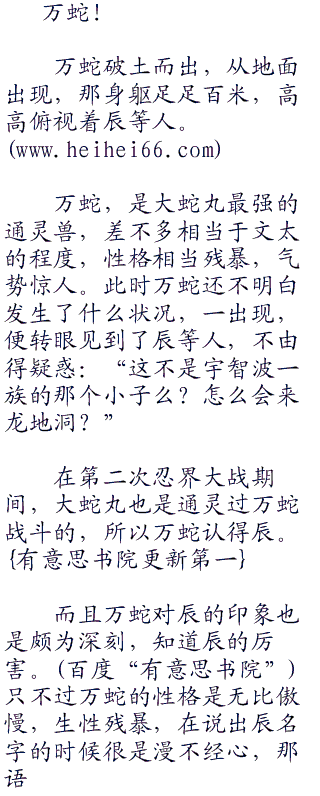 万蛇！
万蛇破土而出，从地面
出现，那身躯足足百米，高
高俯视着辰等人。
(www.heihei66.com)
万蛇，是大蛇丸最强的
通灵兽，差不多相当于文太
的程度，性格相当残暴，气
势惊人。此时万蛇还不明白
发生了什么状况，一出现，
便转眼见到了辰等人，不由
得疑惑：“这不是宇智波一
族的那个小子么？怎么会来
龙地洞？”
在第二次忍界大战期
间，大蛇丸也是通灵过万蛇
战斗的，所以万蛇认得辰。
{有意思书院更新第一}
而且万蛇对辰的印象也
是颇为深刻，知道辰的厉
害。(百度“有意思书院”)
只不过万蛇的性格是无比傲
慢，生性残暴，在说出辰名
字的时候很是漫不经心，那
语